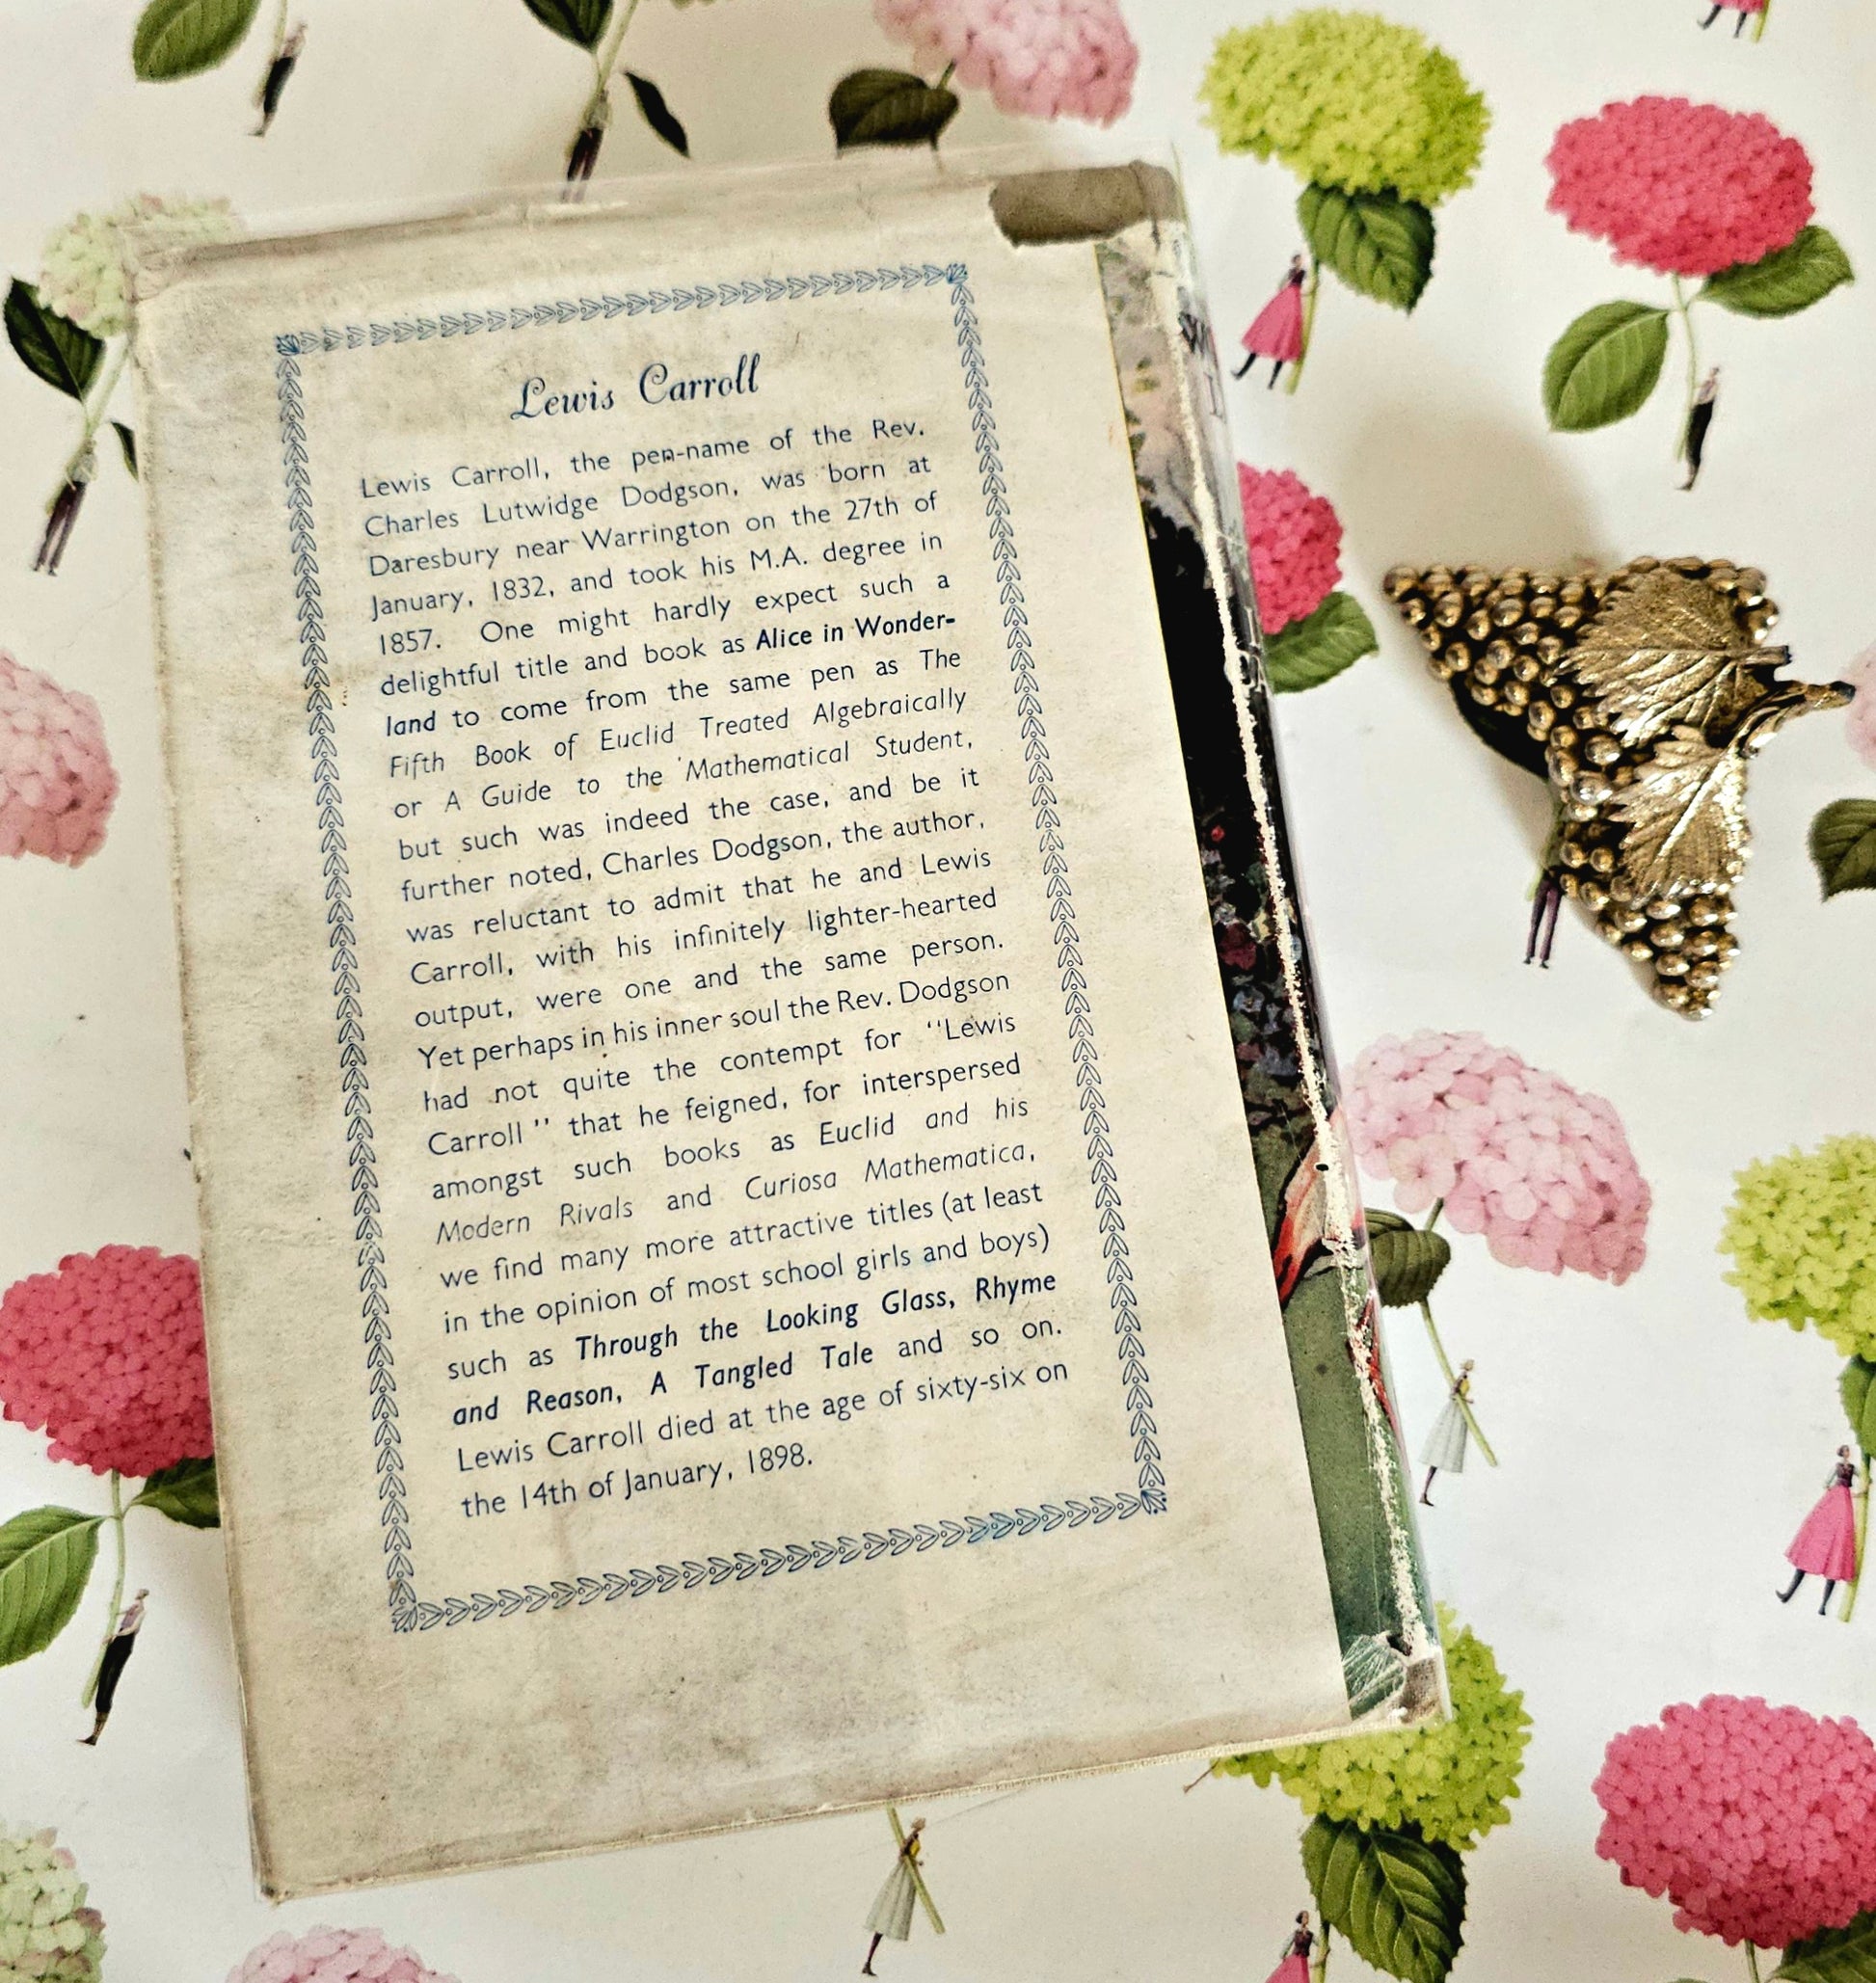 Lewis Carroll
Lewis Carroll, the pen-name of the Rev.
Charles Lutwidge Dodgson, was born at
Daresbury near Warrington on the 27th of
January, 1832, and took his M.A. degree in
1857. One might hardly expect such a
delightful title and book as Alice in Wonder-
land to come from the same pen as The
Fifth Book of Euclid Treated Algebraically
or A Guide to the Mathematical Student,
but such was indeed the case, and be it
further noted, Charles Dodgson, the author,
was reluctant to admit that he and Lewis
Carroll, with his infinitely lighter-hearted
output, were one and the same person.
Yet perhaps in his inner soul the Rev. Dodgson
had not quite the contempt for "Lewis
Carroll" that he feigned, for interspersed
amongst such books as Euclid and his
Modern Rivals and Curiosa Mathematica,
we find many more attractive titles (at least
in the opinion of most school girls and boys)
such as Through the Looking Glass, Rhyme
and Reason, A Tangled Tale and so on.
Lewis Carroll died at the age of sixty-six on
the 14th of January, 1898.